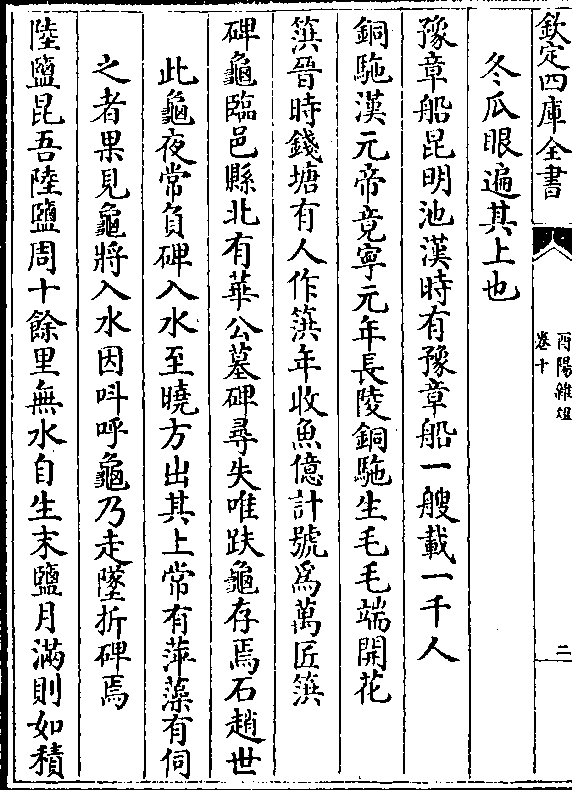 欽定四庫全書
酉陽雜俎
卷十
二
冬瓜眼遍其上也
豫章船昆明池漢時有豫章船一艘載一千人
銅駞漢元帝竟寧元年長陵銅駞生毛毛端開花
篊晉時錢塘有人作篊年收魚億計號為萬匠篊
碑龜臨邑縣北有華公墓碑尋失唯趺龜存焉石趙世
此龜夜常負碑入水至曉方出其上常有萍藻有伺
之者果見龜將入水因叫呼龜乃走墜折碑焉
陸鹽昆吾陸鹽周十餘里無水自生末鹽月滿則如積